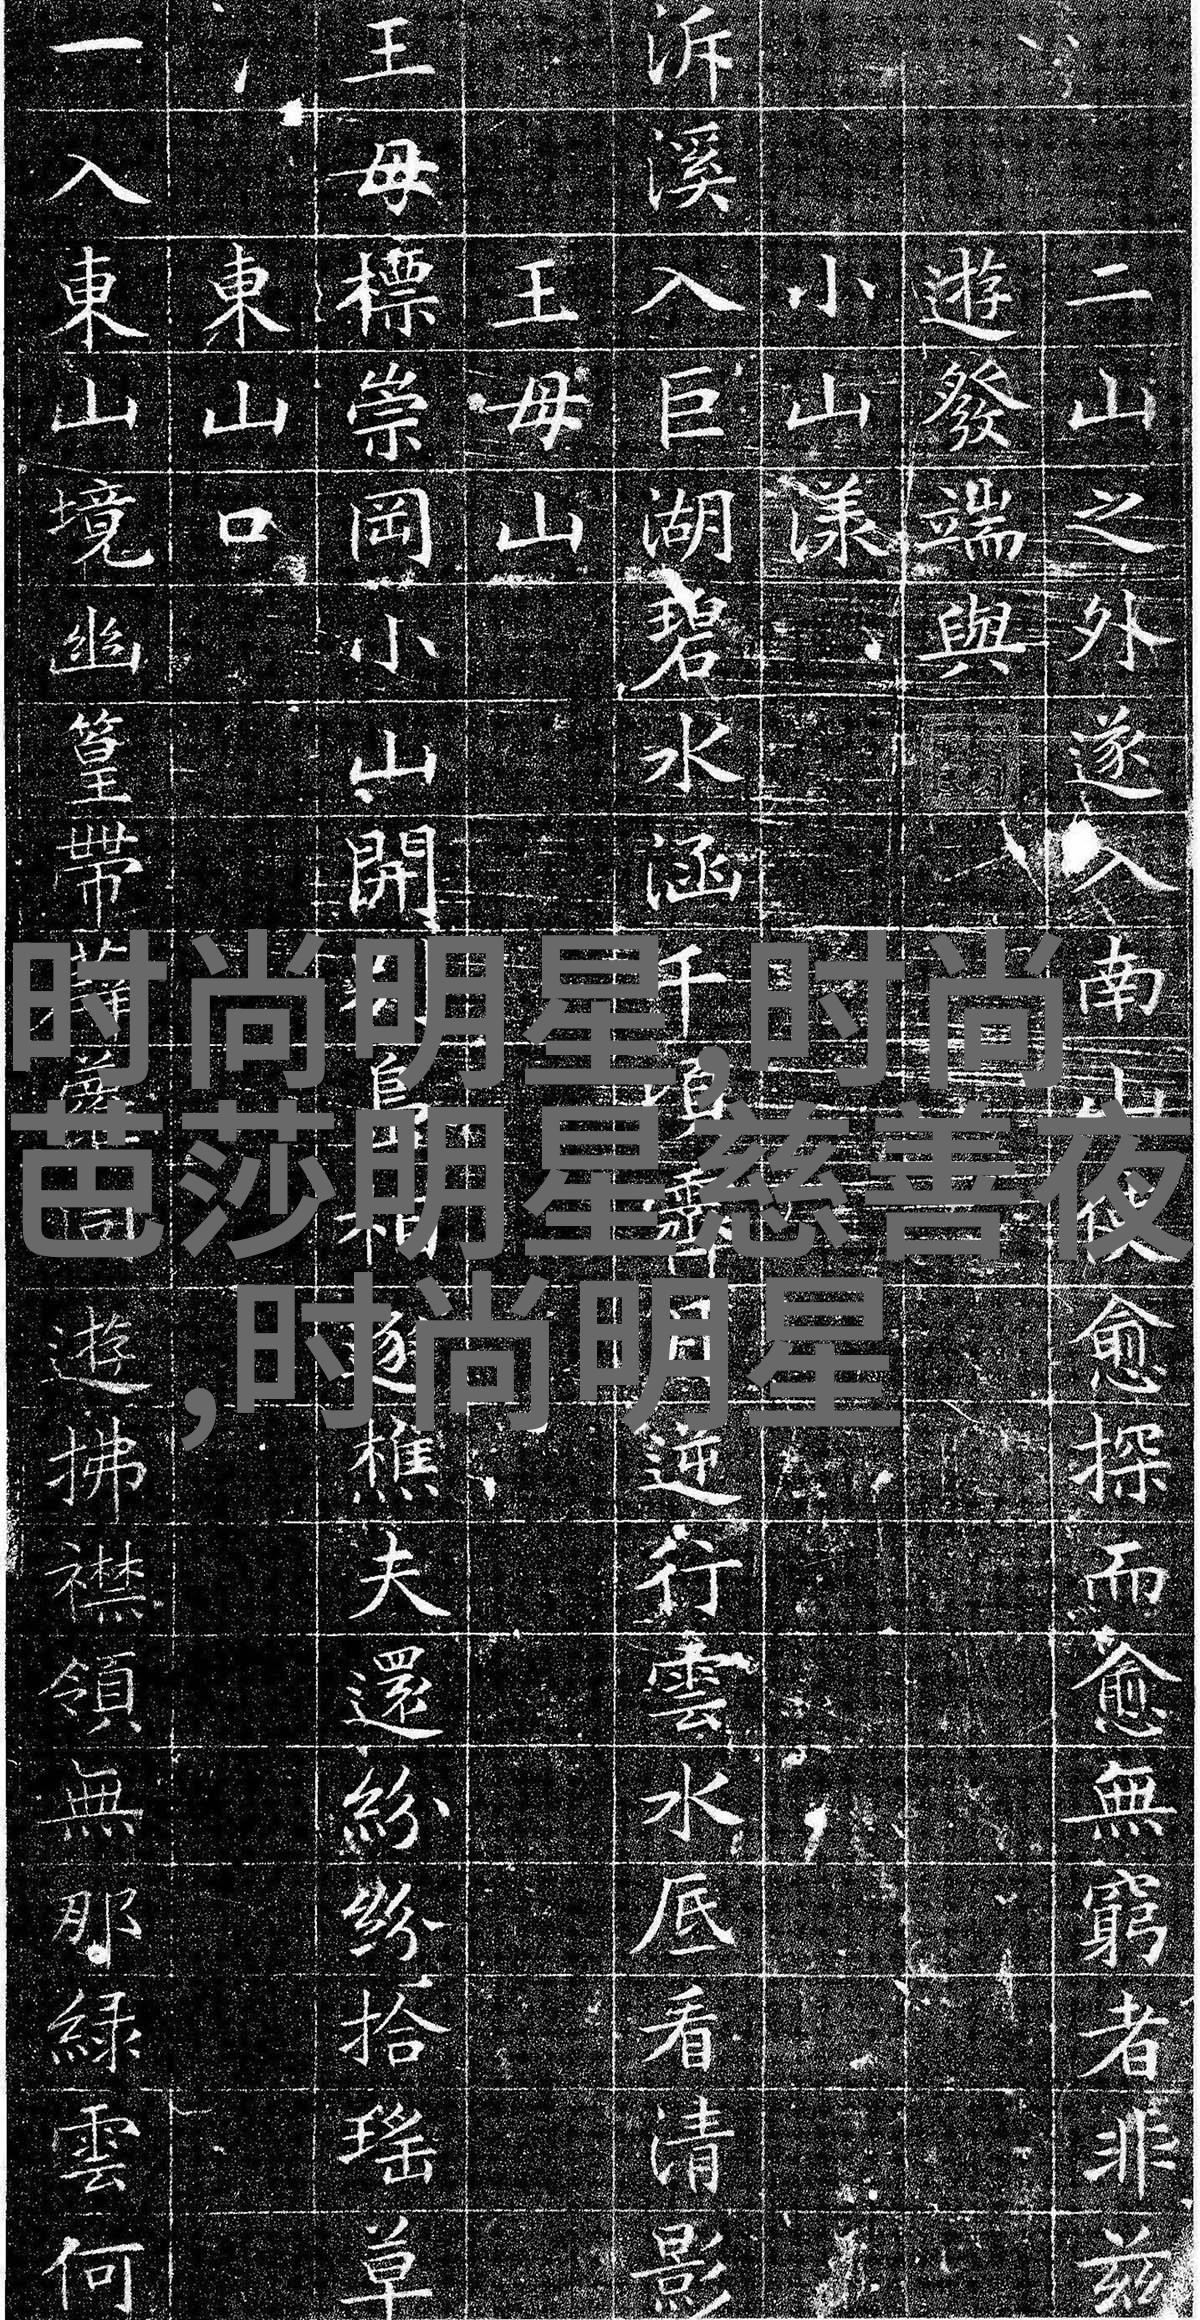 二山之外遂入南山使愈探而愈無窮者非茲
遊發端與
小山漾
泝溪入巨湖碧水涵千頃逆行雲水底看清影
王母山
王母標崇岡小山開相逐樵夫還紛紛拾瑤草
東山口
一入東山境幽篁帶遊拂襟領無那綠雲何
时尚明星,时尚
芭莎明星慈善夜
,时尚明星